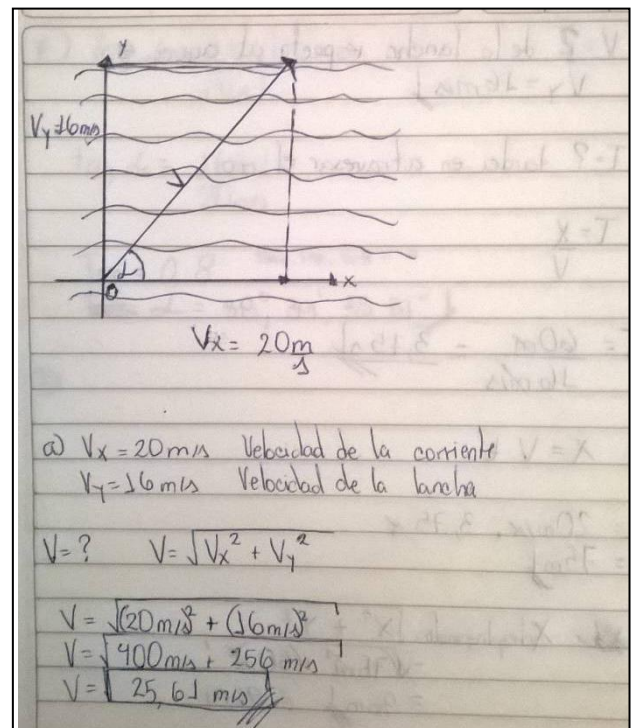 y
Vy=16m/s
α
x
0
Vx = 20m/s
a) Vx = 20m/s Velocidad de la corriente
Vy=16m/s Velocidad de la lancha
V=? V=√Vx² + Vy²
V=√(20m/s)² + (16m/s)²
V=√400m/s + 256 m/s
V=√25,61 m/s